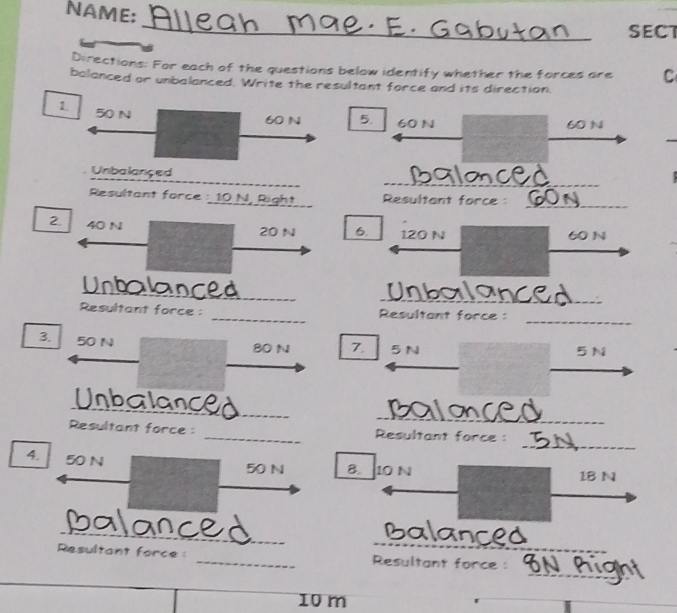 NAME: Alleah mae. E. Gabutan SECT
Directions: For each of the questions below identify whether the forces are
balanced or unbalanced. Write the resultant force and its direction.
1. 50 N 60 N
Unbalanced
Resultant force: 10 N, Right
2. 40 N 20 N
Unbalanced
Resultant force:
3. 50 N 80 N
Unbalanced
Resultant force:
4. 50 N 50 N
Balanced
Resultant force:
5. 60 N 60 N
Balanced
Resultant force: 60N
6. 120 N 60 N
Unbalanced
Resultant force:
7. 5 N 5 N
Balanced
Resultant force: 5N
8. 10 N 18 N
Balanced
Resultant force: 8N Right
10 m